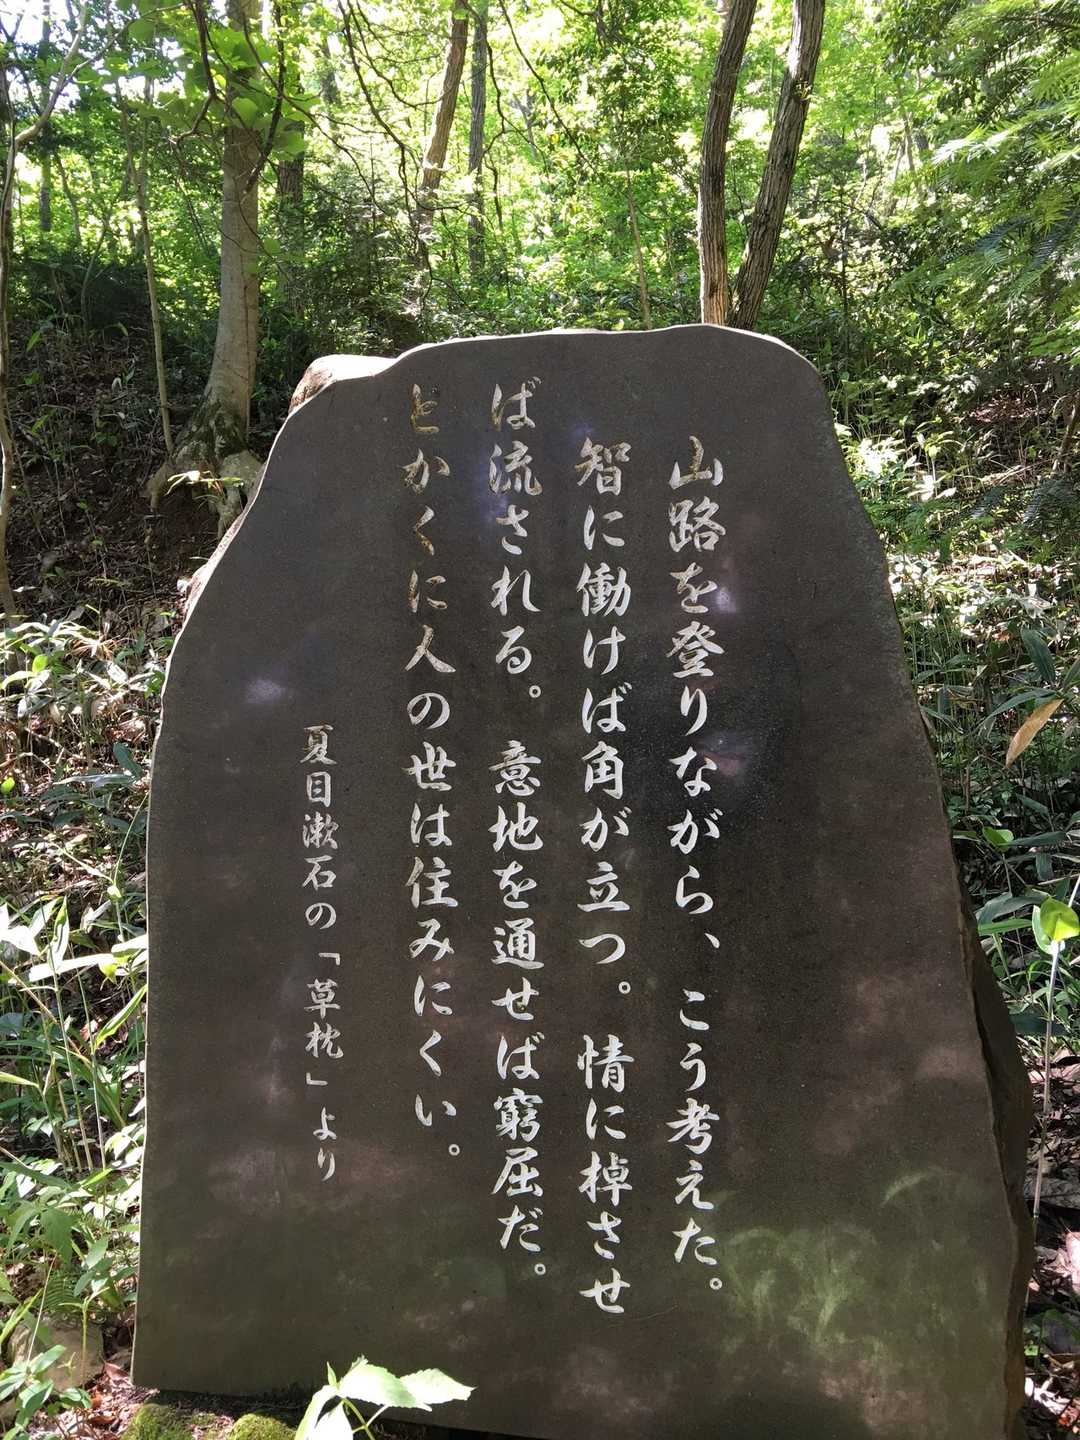 山路を登りながら、こう考えた。
智に働けば角が立つ。情に棹させ
ば流される。意地を通せば窮屈だ。
とかくに人の世は住みにくい。
夏目漱石の「草枕」より